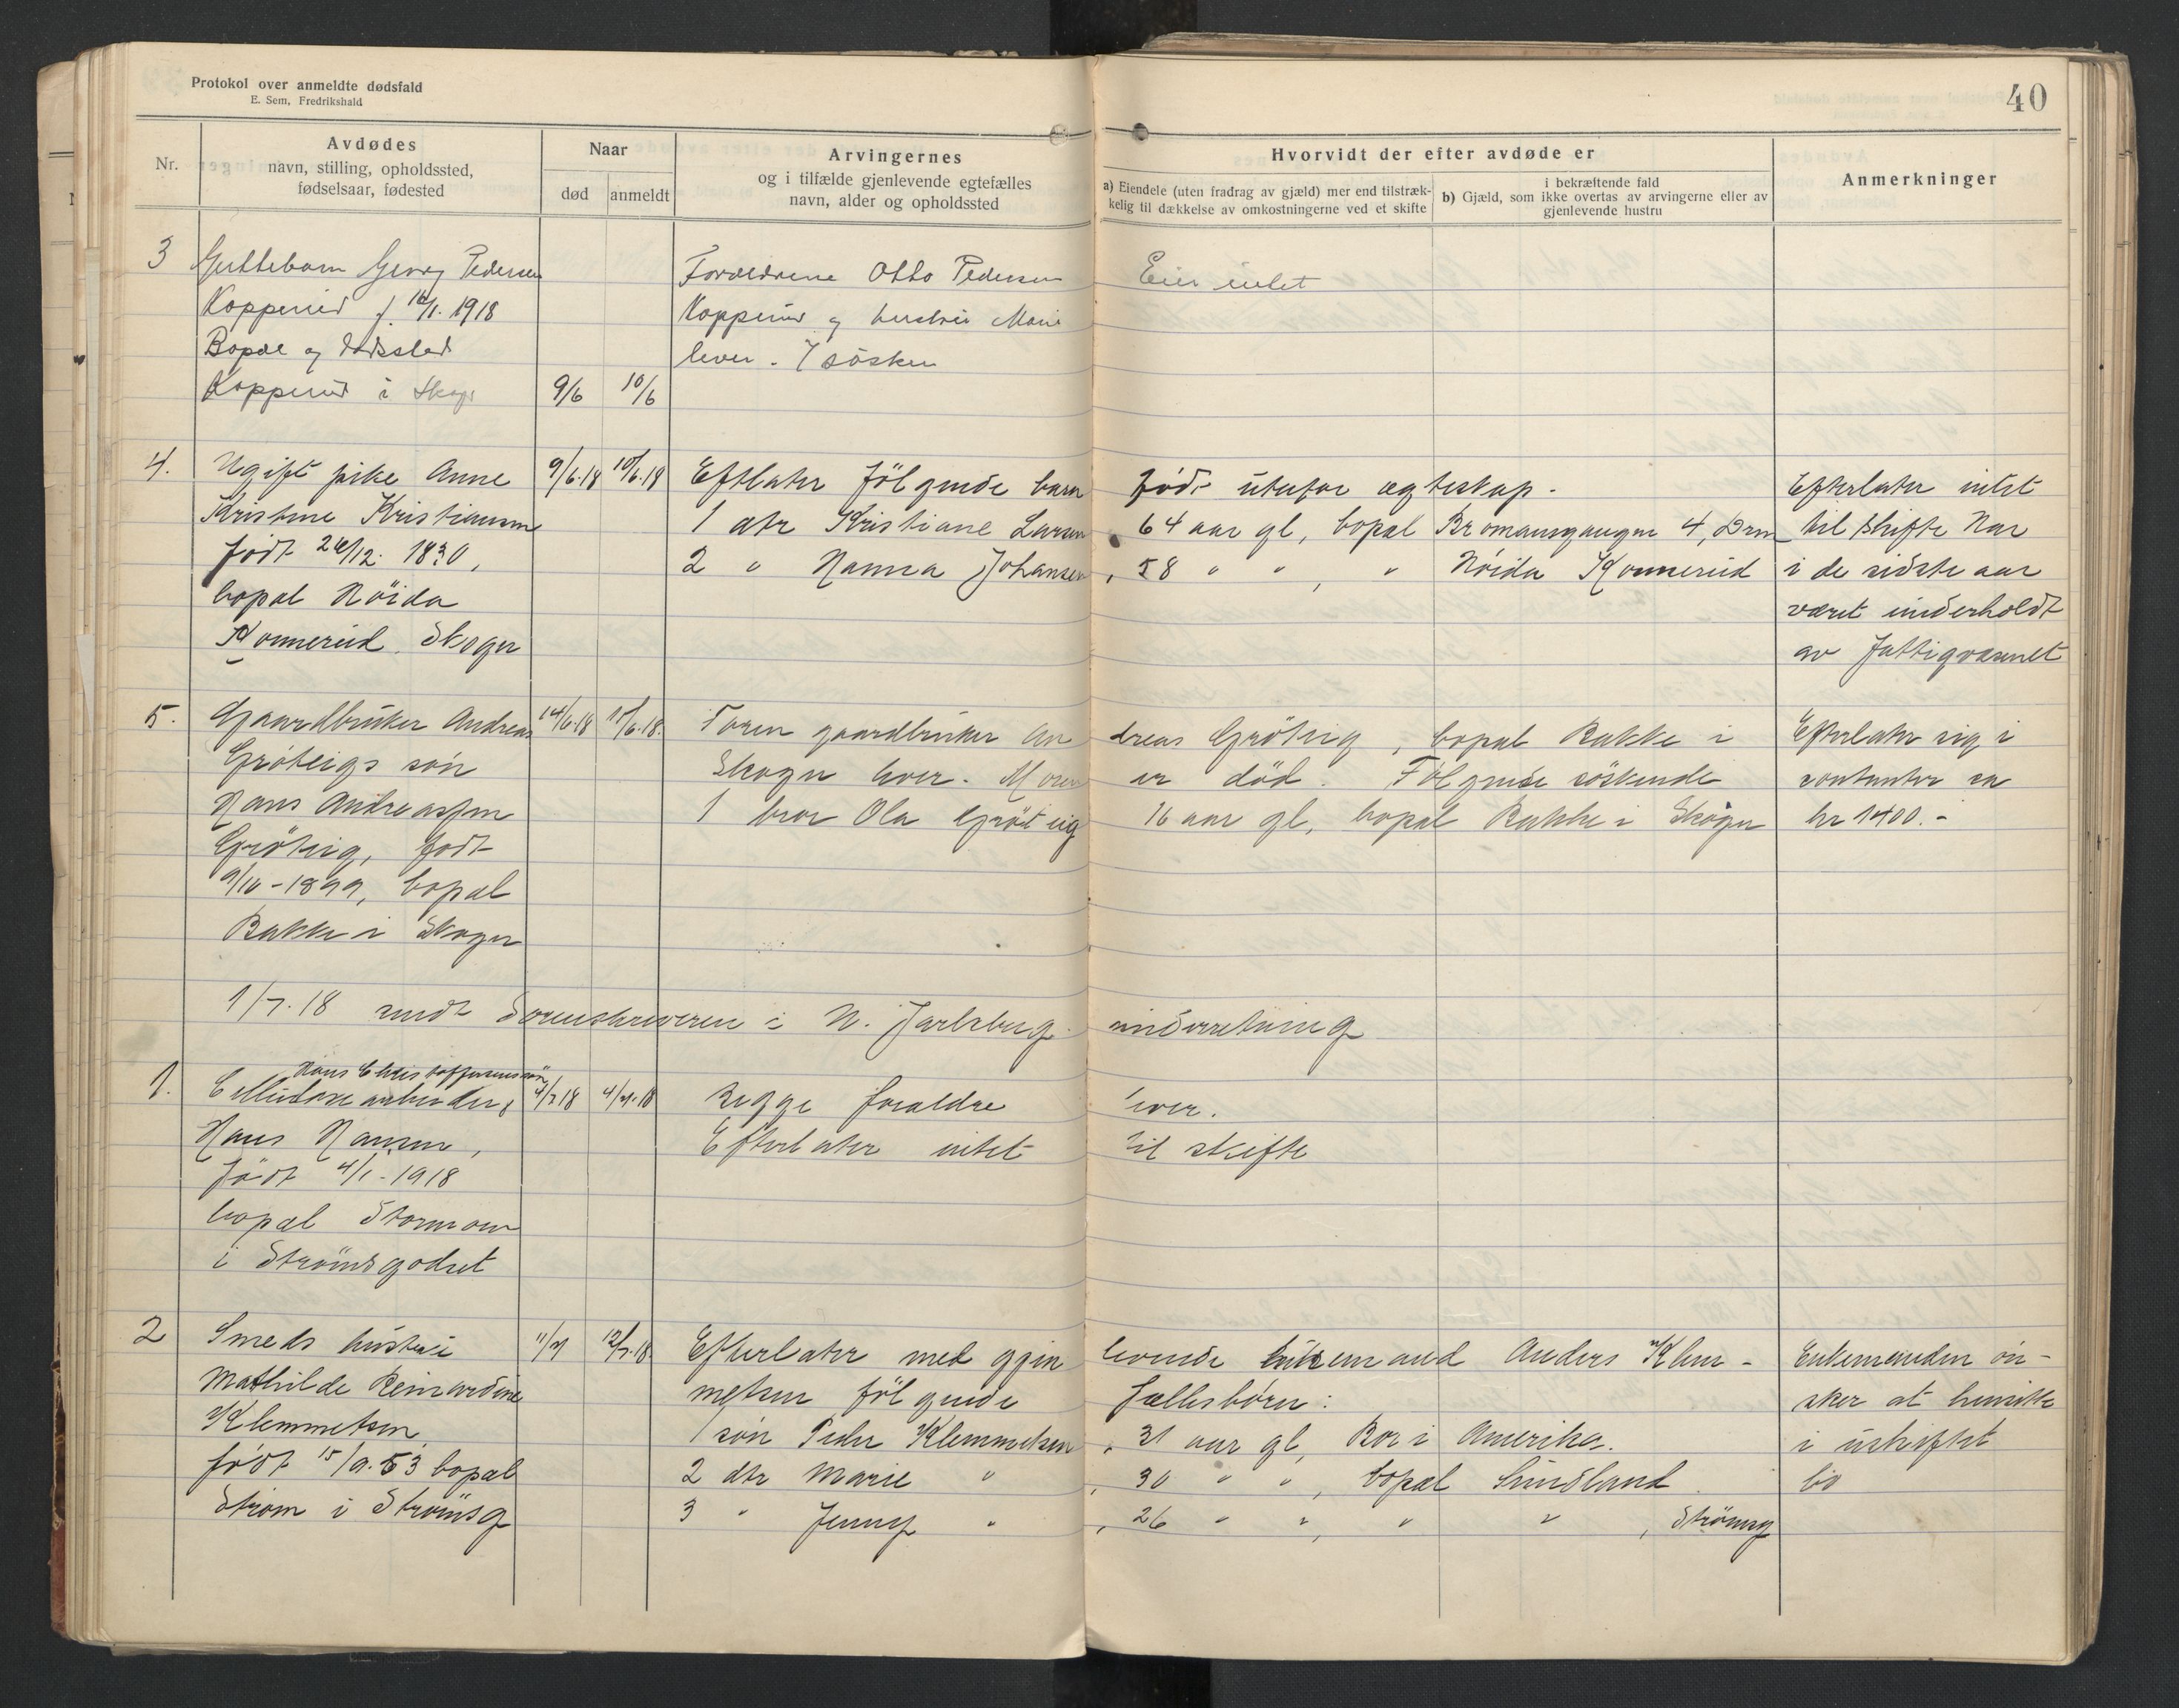 Protokol over anmeldte dødsfald
E. Sem, Fredrikshald
40
Nr.
Avdødes
navn, stilling, opholdssted,
fødselsaar, fødested
Naar
død
anmeldt
Arvingernes
og i tilfælde gjenlevende egtefælles
navn, alder og opholdssted
Hvorvidt der efter avdøde er
a) Eiendele (uten fradrag av gjæld) mer end tilstræk-
kelig til dækkelse av omkostningerne ved et skifte
i bekræftende fald
b) Gjæld, som ikke overtas av arvingerne eller av
gjenlevende hustru
Anmerkninger
3 Guttebarn Georg Pedersen
Kopperud f 1918
Bopæl og dødssted
Kopperud i Skog 9/6 10/6
Forældrene Otto Pedersen
Kopperud og hustru Marie
lever. 7 søsken
Eier intet
4. Ugift pike Anne
Kristine Kristiansen
født 26/12. 1830,
bopæl Nöida
Konnerud. Skoger
9/6.18 10/6.18
Eftlater fölgende barn født utenfor ægteskap.
1 dtr Kristiane Larsen, 64 aar gl, bopæl Bromansgangen 4, Drm
2 " Hanna Johansen, 58 " ", " Nöida Konnerud
Efterlater intet
til skifte Har
i de sidste aar
været underholdt
av Fattigvæsenet
5. Gaardbruker Andreas
Gröteigs sön
Hans Andreassen
Gröteig, født
9/10-1899, bopæl
Bakke i Skoger
14/6.18 15/6.18.
Faren gaardbruker Andreas Gröteig, bopæl Bakke i
Skoger lever. Moren er död. Følgende söskende
1 bror Ola Gröteig 16 aar gl, bopæl Bakke i Skoger
Efterlater sig i
kontanter ca
kr 1400.-
1/7.18 sendt Sorenskriveren i N. Jarlsberg underretning
1. Hans Christoffersens sön
Cellulosearbeider
Hans Hansen,
født 4/1-1918
bopæl Stormoen
i Strömsgodset
4/7 18 4/7.18
Begge forældre lever.
Efterlater intet til skifte
2 Smeds hustru
Mathilde Reinardine
Klemmetsen
født 15/9.53 bopæl
Strøm i Strømsg
11/7 12/7.18.
Efterlater med gjenlevende enkemand Anders Klem-
metsen fölgende fællesbörn:
1 sön Peder Klemmetsen, 31 aar gl, Bor i Amerika.
2 dtr Marie ", 30 " ", bopæl Sundland
3 " Jenny ", 26 " ", " ", Strömsg
Enkemanden ön-
sker at hensitte
i uskiftet
bo